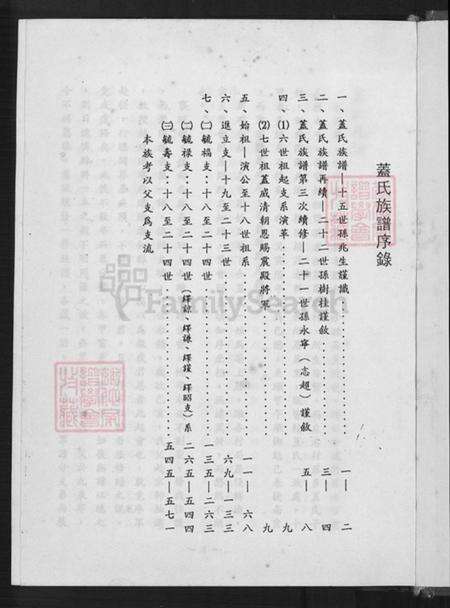 蓋氏族譜序錄
一、蓋氏族譜—十五世孫兆生謹識................一—二
二、蓋氏族譜再續—二十二世孫樹桂謹敘................三—四
三、蓋氏族譜第三次續修—二十一世孫永寧（志超）謹敘......五—八
四、⑴六世祖起支系演革................九
⑵七世祖蓋威清朝恩賜震殿將軍................九
五、始祖—演公至十八世祖系................一一—六八
六、進立支—十九至二十三世................六九—一三三
七、㈠毓福支：十八至二十四世................一三五—二六三
㈡毓祿支：十八至二十四世（繹諒、繹謙、繹謹、繹昭支）系 二六五—五四四
㈢毓壽支：十八至二十四世................五四五—五七一
本族考以父支為支流
FamilySearch